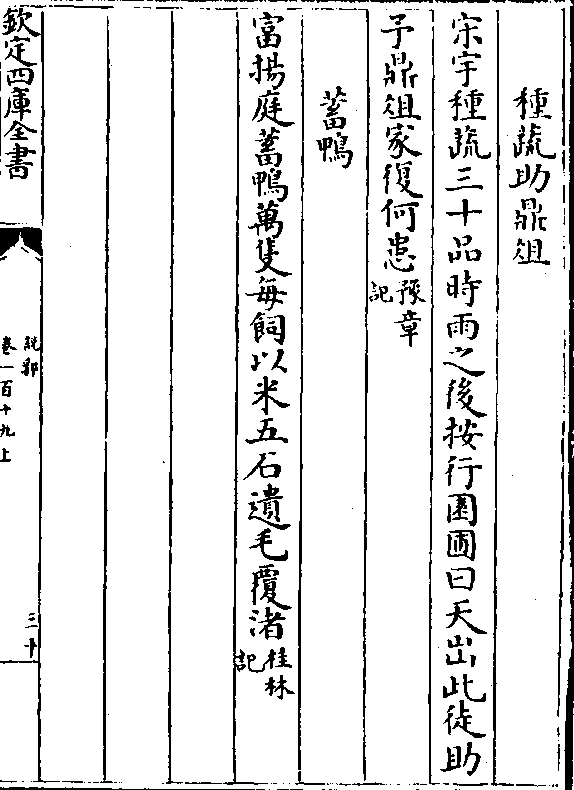 種蔬助鼎俎
宋宇種蔬三十品時雨之後按行園圃曰天出此徒助
予鼎俎家復何患豫章記
蓄鴨
富揚庭蓄鴨萬隻每飼以米五石遺毛覆渚桂林記
欽定四庫全書
說郛
卷一百十九上
三十